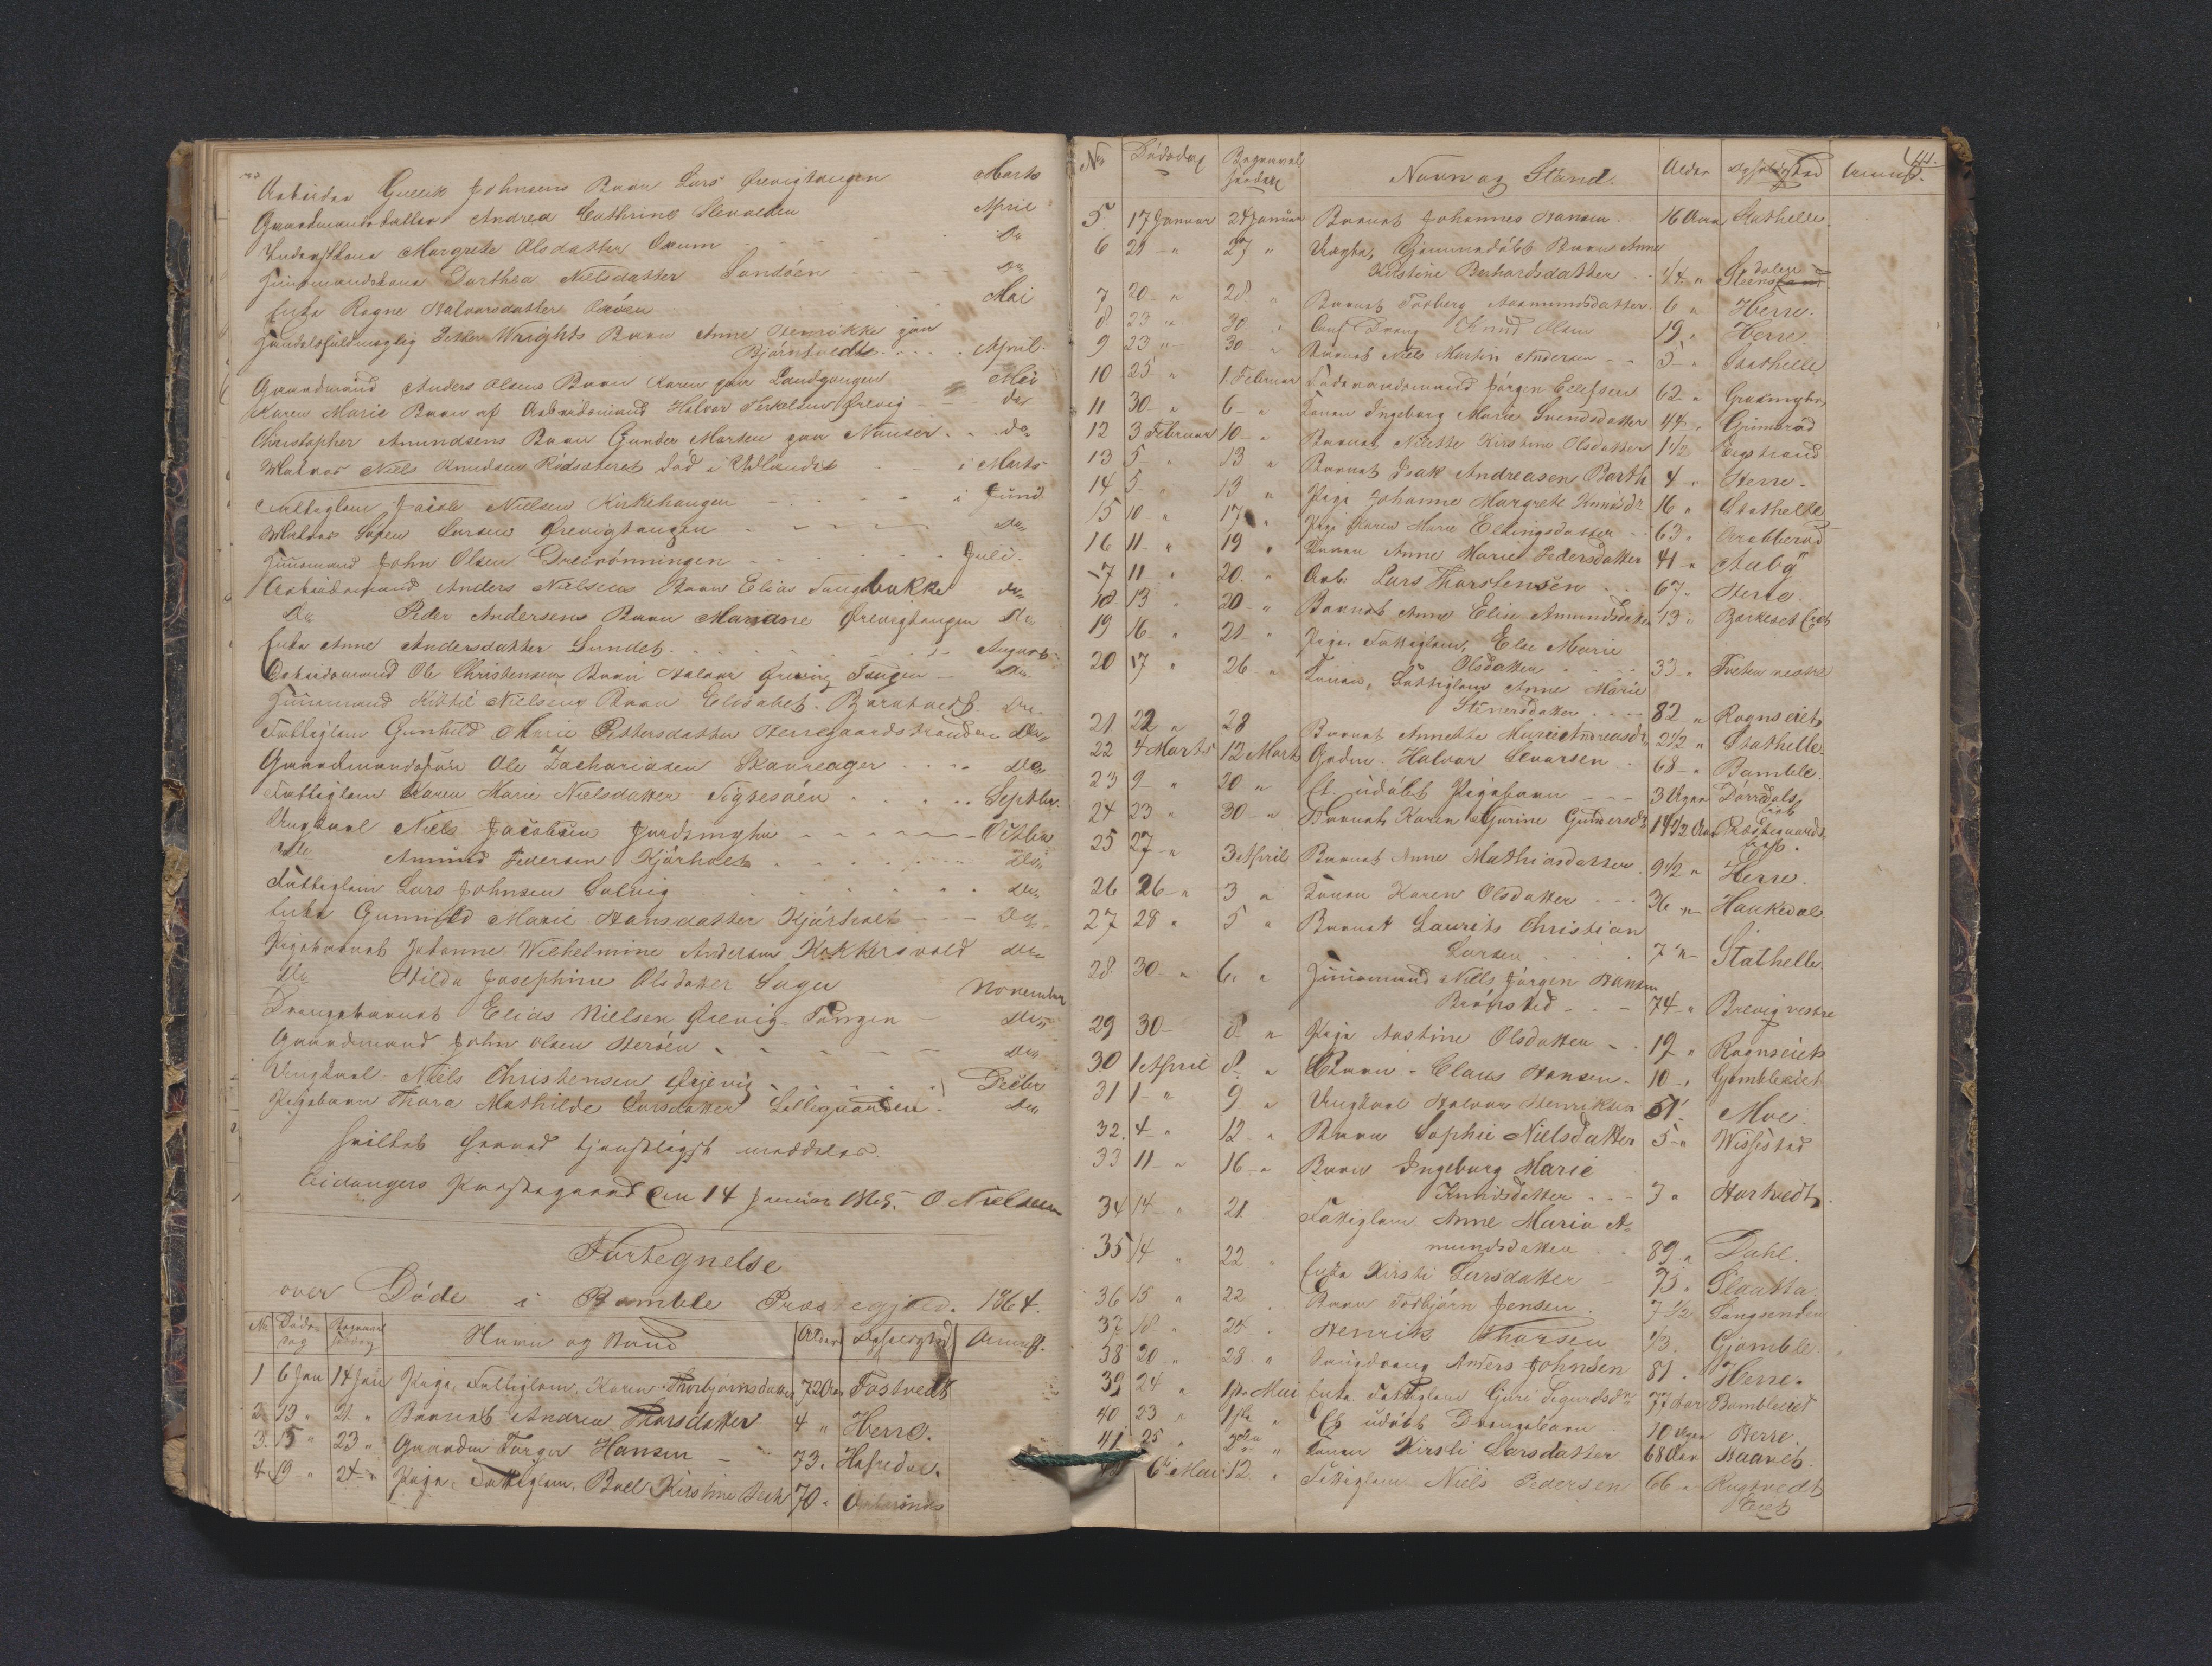 Arbeider Gullik Johnsens Barn Lars Brevigtangen Marts
Gaardmandsdatter Andrea Cathrine Stenolden April
Inderstkone Margrete Olsdatter Oxum Do
Huusmandskone Dorthea Nielsdatter Sandøen Do
Enke Ragne Halvorsdatter Mai
Handelsfuldmægtig Petter Wrights Barn Anne
Bjørntvedt April
Gaardmand Anders Olsens Barn Karen paa Landgangen Mai
Karen Marie Barn af Arbeidsmand Halvor Terkelsen Brevig do
Christopher Amundsens Barn Gunder Marten paa Nauser do
Matros Niels Knudsen Rødsæteret død i Udlandet i Marts
Fattiglem Jacob Nielsen Kirkehaugen i Juni
Matros Lars Larsen Brevigtangen Do
Huusmand John Olsen Juli
Arbeidsmand Anders Nielsens Barn Elias Tangbakke do
Do Peder Andersens Barn Mariane Brevigtangen Do
Enke Anne Andersdatter Sundet August
Arbeidsmand Ole Christensens Barn Halvor Brevig Tangen Do
Huusmand Kittil Nielsens Barn Elisabet Bjørntvedt Do
Fattiglem Gunhild Marie Pettersdatter Herregaardstranden Do
Gaardmandssøn Ole Zachariasen Skavreager Do
Fattiglem Karen Marie Nielsdatter Sigtesøen Septbr
Ungkarl Niels Jacobsen Octbr
Do Amund Pedersen Kjørholt Do
Fattiglem Lars Johnsen Solvig Do
Enke Gunnild Marie Hansdatter Kjørholt Do
Pigebarnet Johanne Wilhelmine Andersen Kokkersvold Do
Do Hilda Josephine Olsdatter Saga November
Drengebarnet Elias Nielsen Brevig Tangen Do
Gaardmand John Olsen Herøen Do
Ungkarl Niels Christensen Decbr
Pigebarn Thora Mathilde Larsdatter Lillegaarden Do
hvilket herved tjenstligst meddeles.
Eidangers Præstegaard den 14 Januar 1865. O Nielsen
Fortegnelse
over Døde i Bamble Præstegjeld. 1864.
No Døds dag Begravelses dag Navn og Stand Alder Opholdssted Anmk.
1 6 Jan 14 Jan Pige, Fattiglem, Karen Thorbjørnsdatter 72 Aar Tostvedt
2 13 " 21 " Barnet Andrea Thorsdatter 4 " Herre.
3. 15 " 23 " Gaardm Torger Hansen 73. Hafredal.
4. 19 " 24 " Pige, Fattiglem, Boel Kirstine Bech 70 "
No Dødsdag Begravelsesdag Navn og Stand. Alder Opholdssted Anm.
5. 17 Januar 24 Januar Barnet Johannes Hansen 16 Aar Stathelle.
6 21 " 27 " Uægte, Hjemmedøbt Barn Anne
Kirstine Berhardsdatter 1/4 " Steensdalen
7 20 " 28. " Barnet Torberg Aasmundsdatter 6 " Herre.
8 23 " 30. " Ungk Dreng Knud Olsen 19 " Herre.
9 23 " 30 " Barnet Niels Martin Andersen 5 " Stathelle
10 25 " 1. Februar Føderaadsmand Jørgen Ellefsen 62 " Grasmyhr
11 30 " 6 " Konen Ingeborg Marie Svendsdatter 44 " Grimerød
12 3 Februar 10 " Barnet Nicette Kirstine Olsdatter 1 1/2 Eegstrand
13 5 " 13 " Barnet Isak Andreasen Barth 4 " Herre.
14 5 " 13 " Pige Johanne Margrete Knudsdr 16 " Stathelle
15 10 " 17 " Pige Karen Marie Ellingsdatter 63 " Krabberød
16 11 " 19 " Konen Anne Marie Pedersdatter 41 " Aaby
17 11 " 20. " Arb: Lars Thorstensen 67 " Herre.
18 13 " 20 " Barnet Anne Elise Amundsdatter 13 "
19 16 " 21 " Pige, Fattiglem, Else Marie
Olsdatter 33 " Tveten vestre
20 17 " 26 " Konen, Fattiglem Anne Marie
Stinersdatter 82 " Rognseiet
21 22 " 28 Barnet Annette Marie Andreasdr 2 1/2 " Stathelle
22 4 Marts 12 Marts Gaardm. Halvor Sivarsen 68 " Bamble.
23 9 " 20 " Et udøbt Pigebarn 3 Uger Dørdals
24 23 " 30 " Barnet Karen Gurine Gundersdr 14 1/2 Aar Præstegaards
25 27 " 3 April Barnet Anne Mathiasdatter 9 1/2 " Herre.
26 26 " 3 " Konen Karen Olsdatter 36 " Haukedal
27 28 " 5 " Barnet Laurits Christian
Larsen 7 " Stathelle.
28 30 " 6. " Huusmand Niels Jørgen Hansen
Brønsted 74 " Brevig vestre
29 30 " 8 " Pige Aastine Olsdatter 19 " Rognseiet
30 1 April 8. " Barn Claus Hansen 10 " Gjømbleeiet
31 1 " 9 " Ungkarl Halvor Henriksen 51 " Moe
32. 4 " 12 " Barn Sophie Nielsdatter 5 " Wissestad
33 11 " 16 " Barn Ingeborg Marie
Knudsdatter 3 " Hartvedt
34 14 " 21 Fattiglem Anne Maria A-
mundsdatter 89 " Dahl.
35 14 " 22 " Enke Kirsti Larsdatter 75 " Slaatta
36 15 " 22 Barn Torbjørn Jensen 7 1/2 Langsenden
37 18 " 24 " Henrik Thorsen 13. Gjømble.
38 20 " 28. " Anders Johnsen 81 " Herre.
39 24 " 1ste Mai Enke Fattiglem Gjøri Sigurdsdr 77 Aar Bambleeiet
40 23 " 1ste " Et udøbt Drengebarn 10 Uger Herre.
41 25 " 2den " Konen Kirsti Larsdatter 68 Aar
6te Mai 12 " Fattiglem Niels Pedersen 66 " Rugtvedt
Eiet